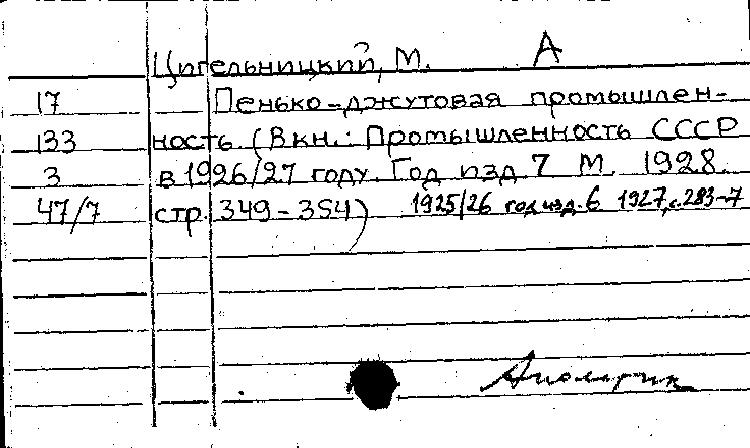 Цигельницкий, М. А
17 Пенько-джутовая промышлен-
133 ность (В кн.: Промышленность СССР
3 в 1926/27 году. Год изд. 7 М. 1928.
47/7 стр. 349-354) 1925/26 год изд. 6 1927, с. 283-7